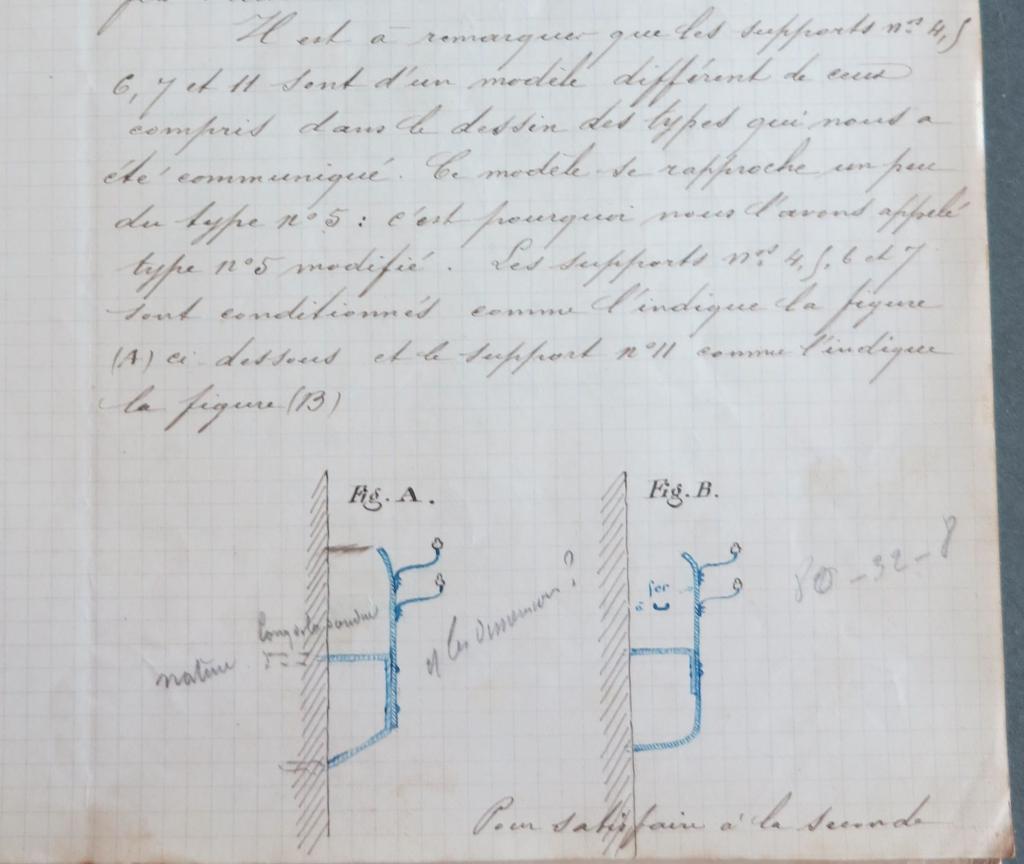 Il est à remarquer que les supports nos 4, 5
6, 7 et 11 sont d'un modèle différent de ceux
compris dans le dessin des types qui nous a
été communiqué. Ce modèle se rapproche un peu
du type n° 5 : c'est pourquoi nous l'avons appelé
type n° 5 modifié. Les supports nos 4, 5, 6 et 7
sont conditionnés comme l'indique la figure
(A) ci dessous et le support n° 11 comme l'indique
la figure (B)
Fig. A.
Fig. B.
fer
à
80-32-8
nature
et les dimensions ?
Pour satisfaire à la seconde